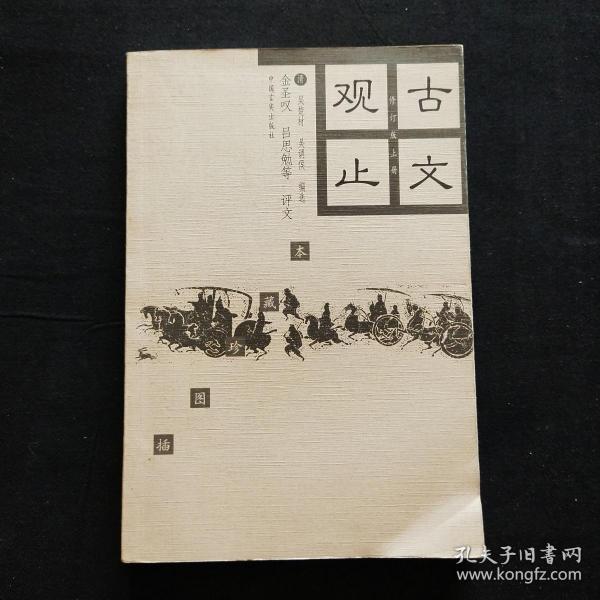 古文
观止
修订版上册
清 吴楚材 吴调侯 编选
金圣叹 吕思勉等 评文
中国言实出版社
插图珍藏本
孔夫子旧书网
www.kongfz.com